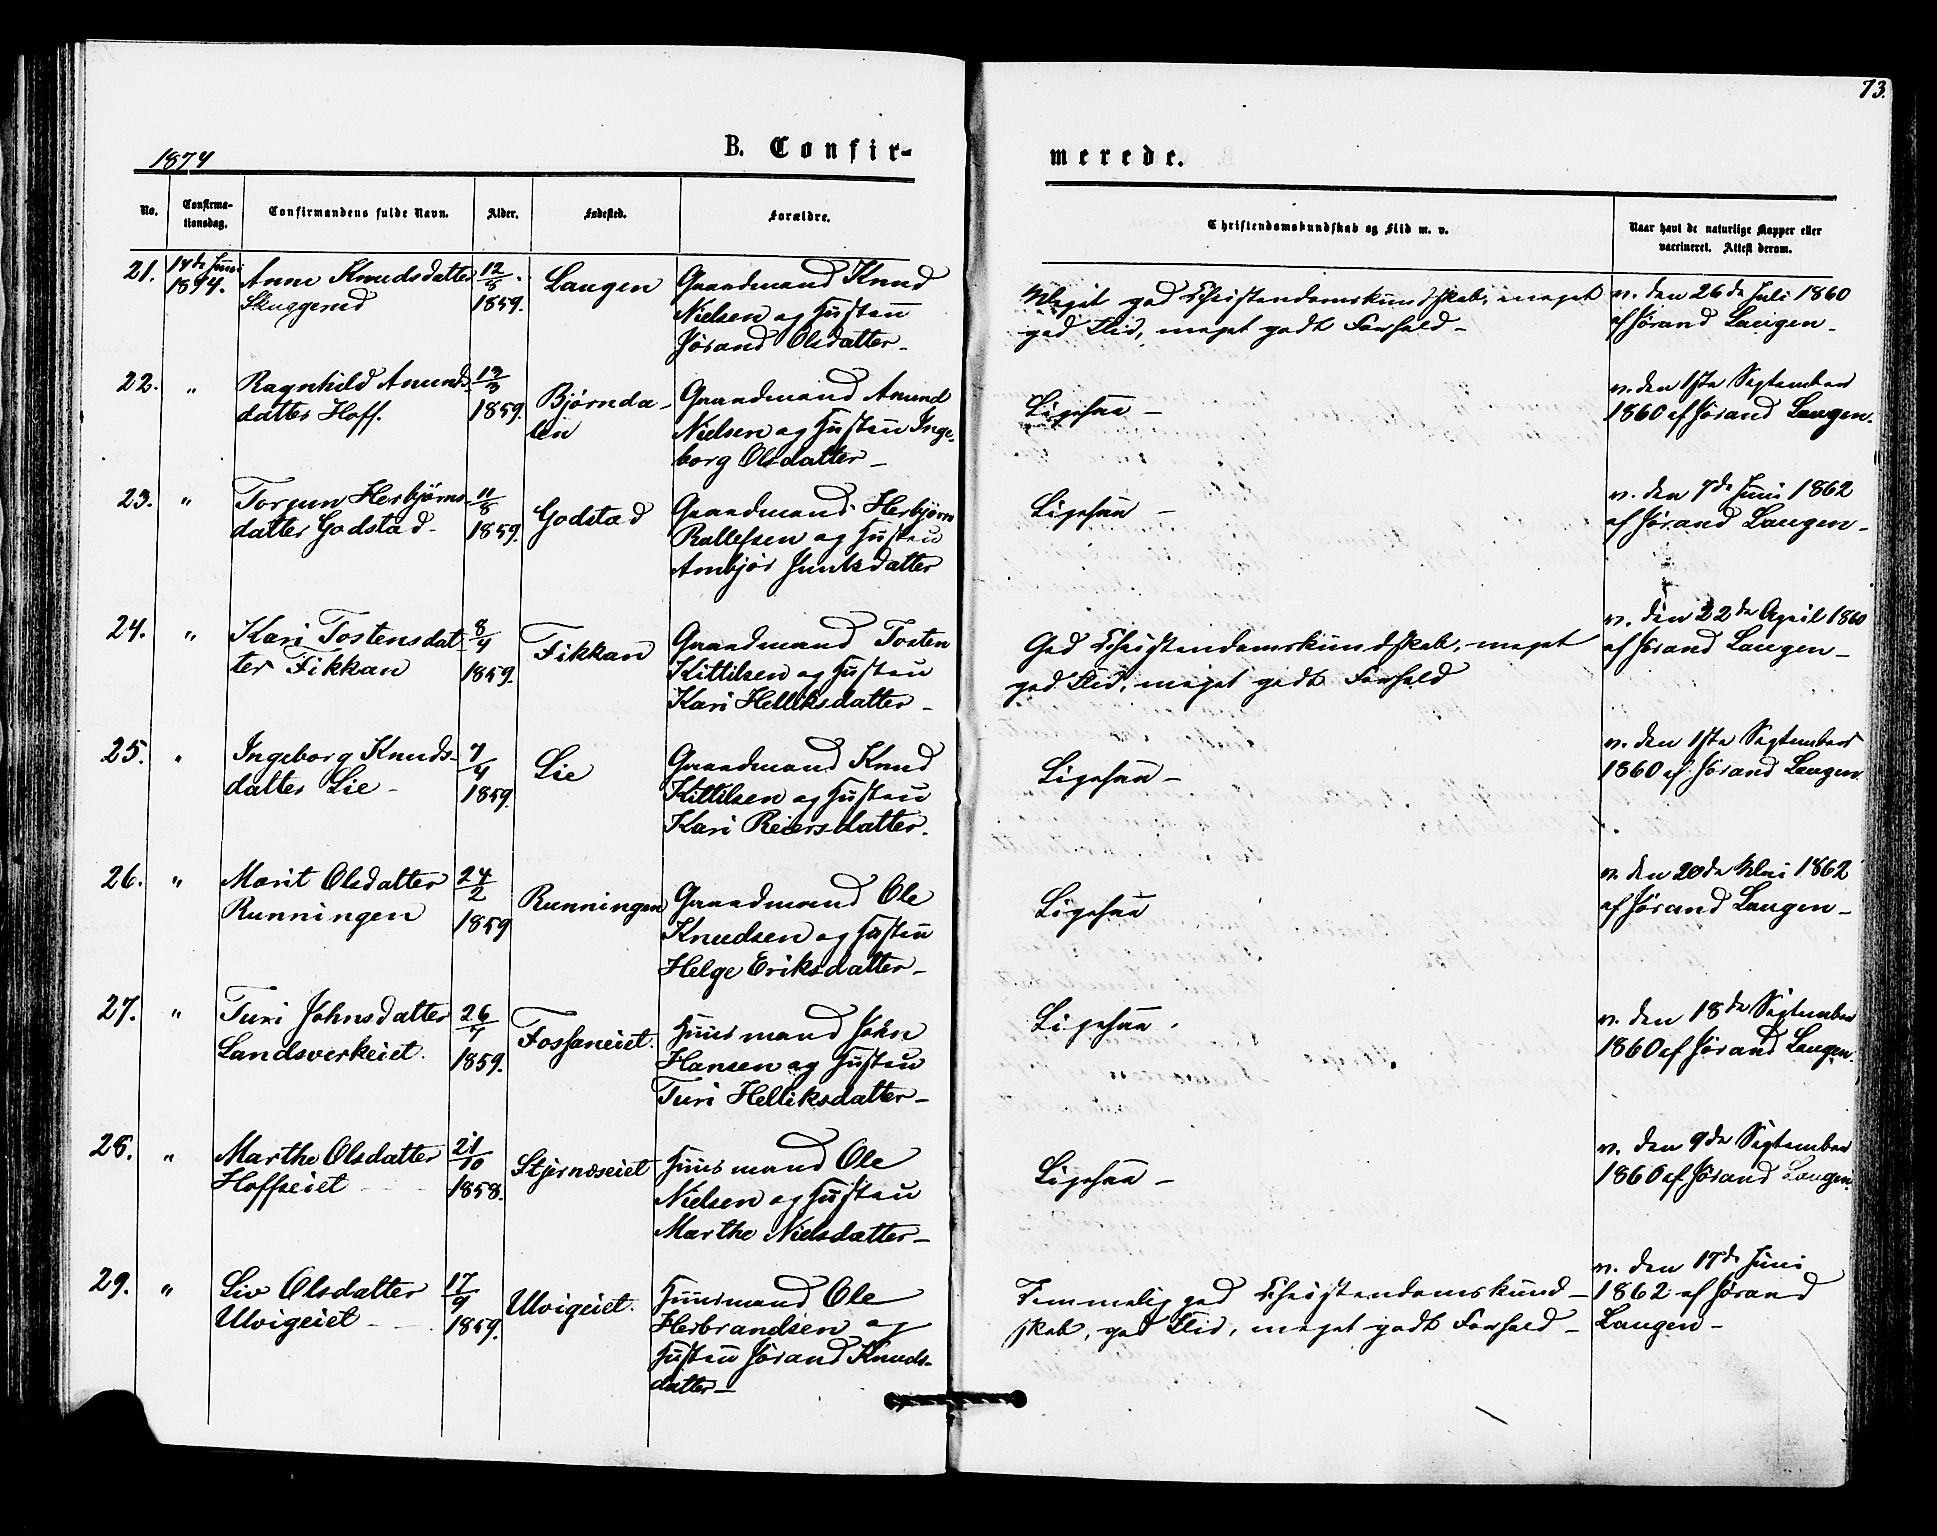 73.
1874
B. Confir-
merede.
No.
Confirma-
tionsdag.
Confirmandens fulde Navn.
Alder.
Fødested.
Forældre.
Christendomskundskab og Flid m. v.
Naar havt de naturlige Kopper eller
vaccineret. Attest derom.
21.
14de Juni
1874.
Anne Knudsdatter
Skuggerud
12/5
1859.
Laugen
Gaardmand Knud
Nielsen og Hustru
Jørand Olsdatter
Meget god Christendomskundskab, meget
god Flid, meget godt Forhold
v. den 26de Juli 1860
af Jørand Laugen
22.
"
Ragnhild Amunds-
datter Hoff.
12/3
1859.
Bjørnda-
len
Gaardmand Amund
Nielsen og Hustru Inge-
borg Olsdatter
Ligesaa
v. den 1ste September
1860 af Jørand Laugen.
23.
"
Torgun Herbjørns-
datter Godstad
11/8
1859.
Godstad
Gaardmand Herbjørn
Rollefsen og Hustru
Ambjør Juulsdatter
Ligesaa
v. den 7de Juni 1862
af Jørand Laugen
24.
"
Kari Tostensdat-
ter Fikkan
8/4
1859.
Fikkan
Gaardmand Tosten
Kittilsen og Hustru
Kari Helliksdatter
God Christendomskundskab, meget
god Flid, meget godt Forhold
v. den 22de April 1860
af Jørand Laugen
25.
"
Ingeborg Knuds-
datter Lie
7/4
1859.
Lie
Gaardmand Knud
Kittilsen og Hustru
Kari Reiersdatter.
Ligesaa
v. den 1ste September
1860 af Jørand Laugen.
26.
"
Marit Olsdatter
Runningen
24/2
1859
Runningen
Gaardmand Ole
Knudsen og Hustru
Helge Eriksdatter
Ligesaa
v. den 20de Mai 1862
af Jørand Laugen
27.
"
Turi Johnsdatter
Landsverkeiet.
26/7
1859.
Fossaneiet.
Huusmand John
Hansen og Hustru
Turi Helliksdatter
Ligesaa
v. den 18de September
1860 af Jørand Laugen.
28.
"
Marthe Olsdatter
Hoffseiet
21/10
1858.
Stjernæseiet
Huusmand Ole
Nielsen og Hustru
Marthe Nielsdatter
Ligesaa
v. den 9de September
1860 af Jørand Laugen.
29.
"
Liv Olsdatter
Ulvigeiet
17/9
1859.
Ulvigeiet.
Huusmand Ole
Herbrandsen og
Hustru Jørand Knuds-
datter
Temmelig god Christendomskund-
skab, god Flid, meget godt Forhold
v. den 17de Juni
1862 af Jørand
Laugen